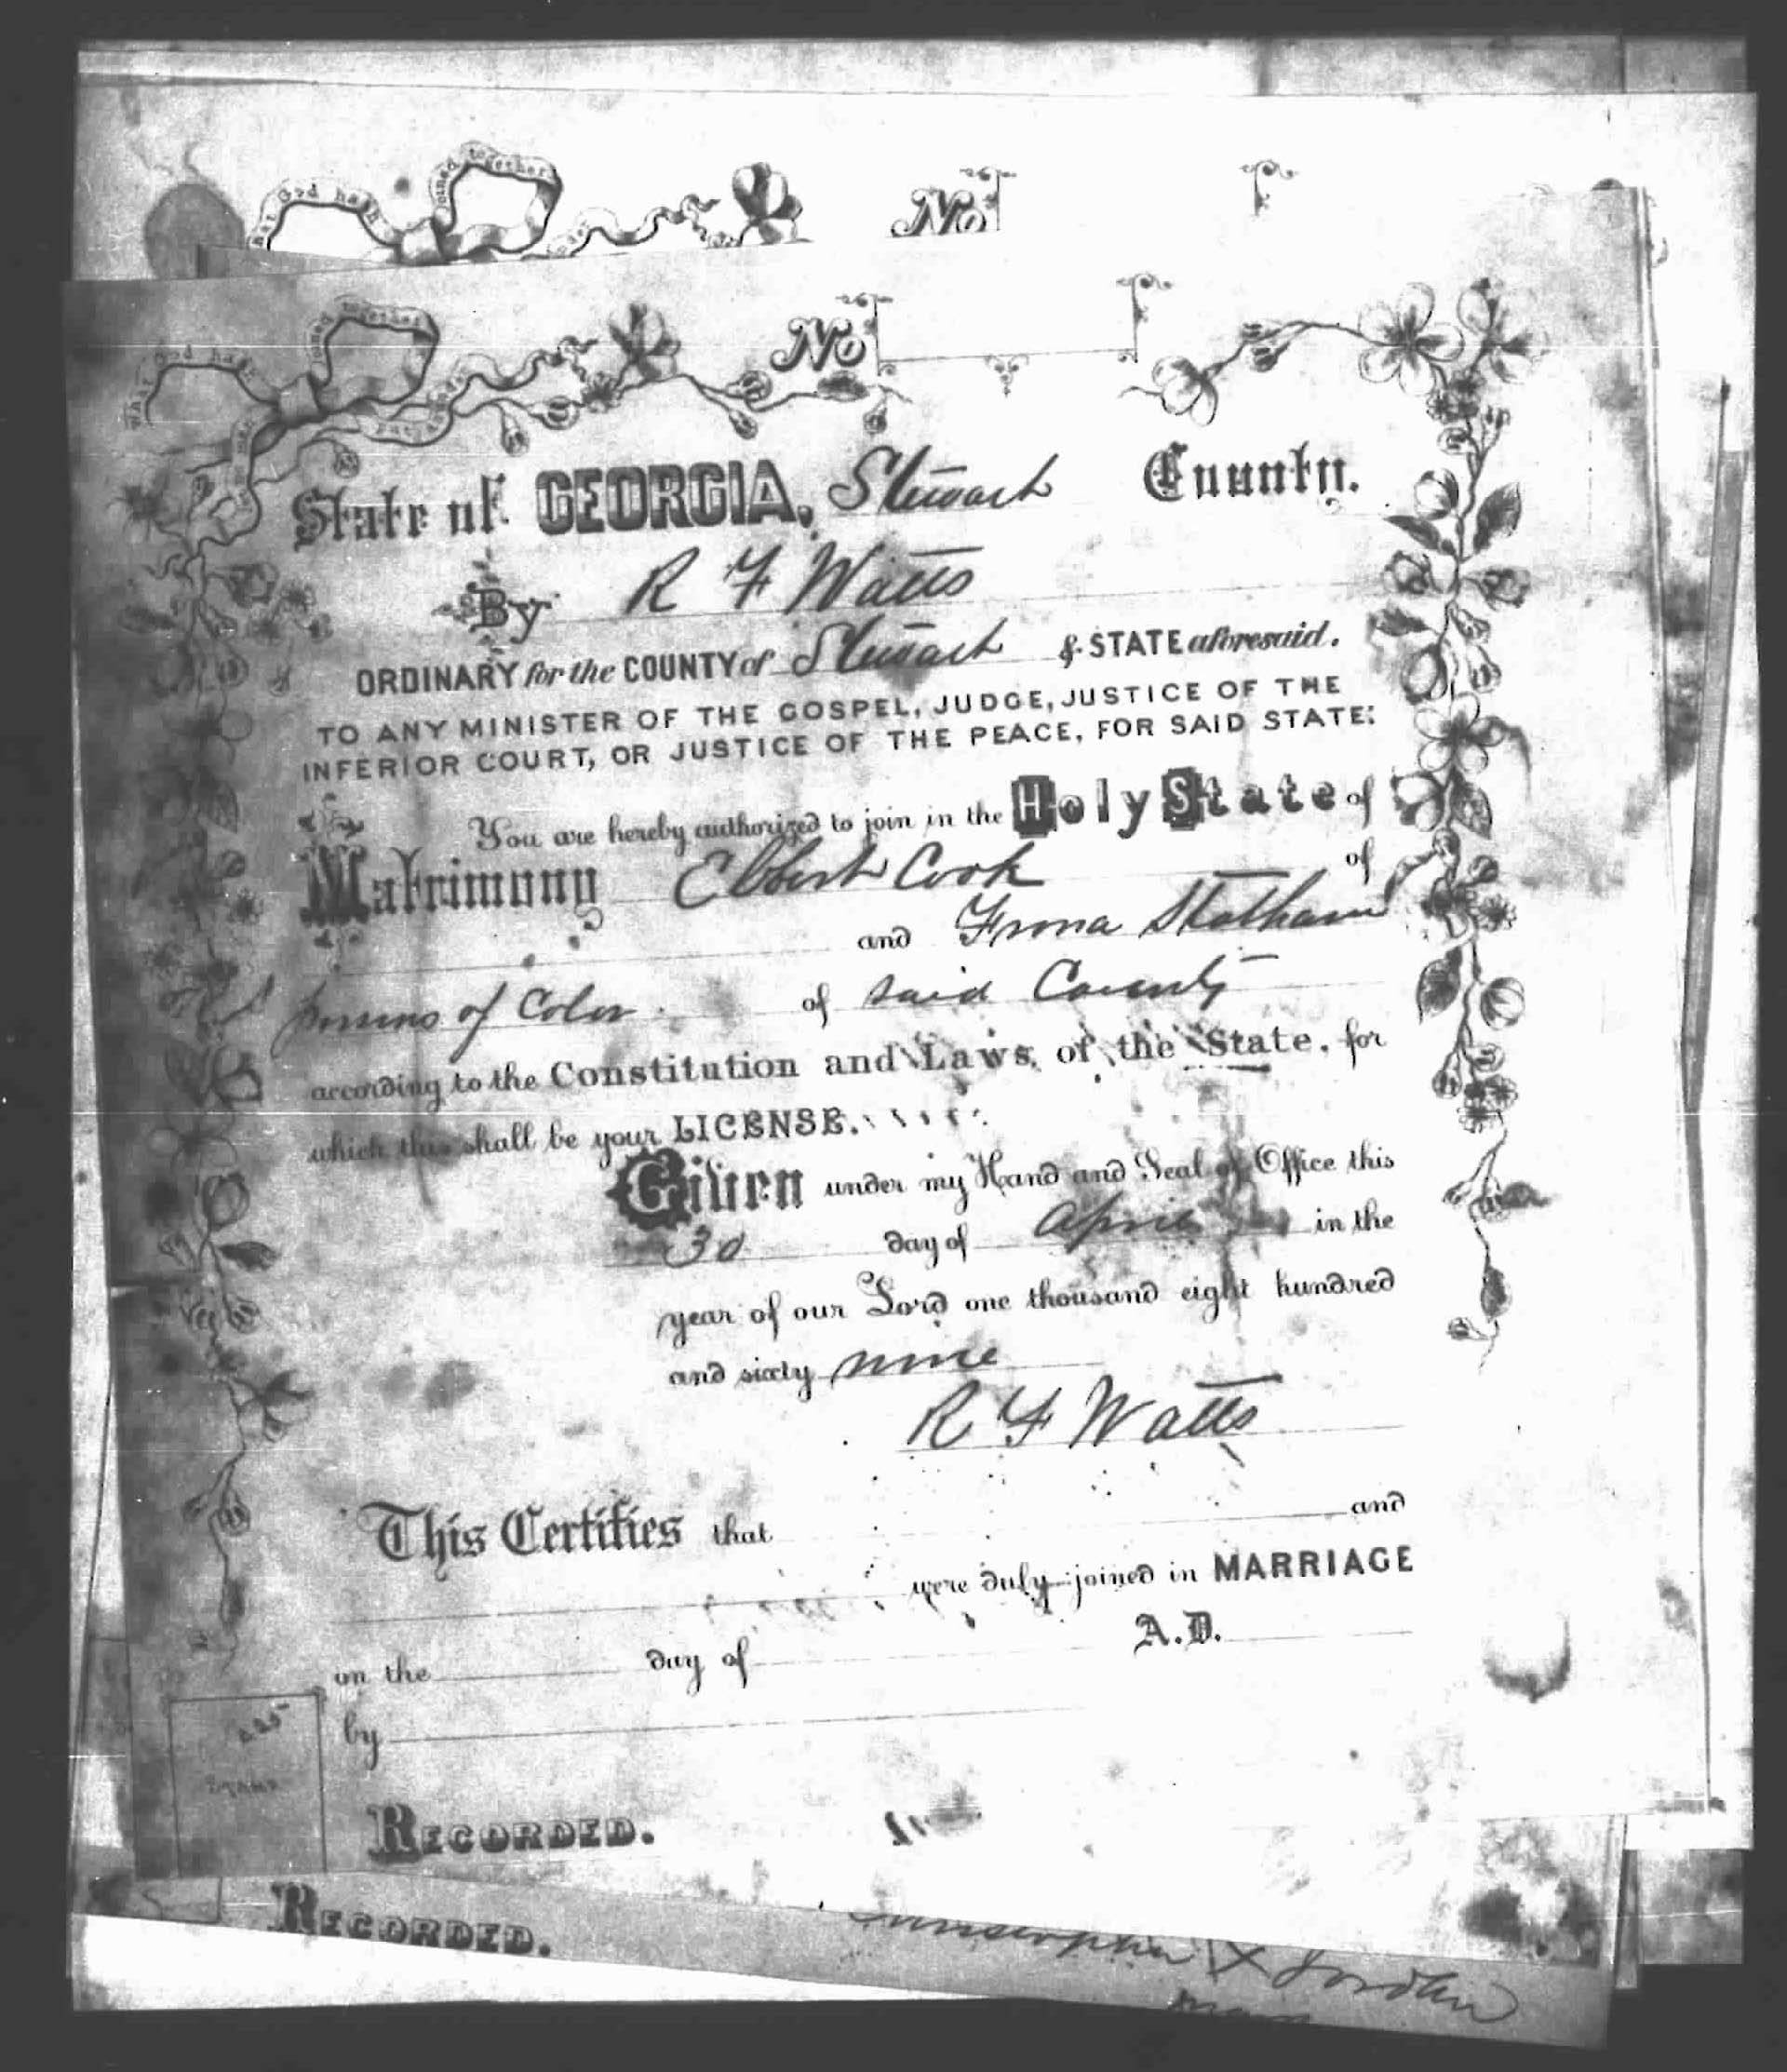 hat God hath joined together
No
What God hath joined together
let no man put asunder
No
State of GEORGIA, Stewart County.
By R F Watts
ORDINARY for the COUNTY of Stewart & STATE aforesaid.
TO ANY MINISTER OF THE GOSPEL, JUDGE, JUSTICE OF THE
INFERIOR COURT, OR JUSTICE OF THE PEACE, FOR SAID STATE:
You are hereby authorized to join in the Holy State of
Matrimony Elbert Cook of
and Frona Statham
persons of Color of said County
according to the Constitution and Laws of the State, for
which this shall be your LICENSE.
Given under my Hand and Seal of Office this
30 day of April in the
year of our Lord one thousand eight hundred
and sixty nine
R F Watts
This Certifies that and
were duly joined in MARRIAGE
on the day of A.D.
by
Stamp
RECORDED.
RECORDED.
X Jordan